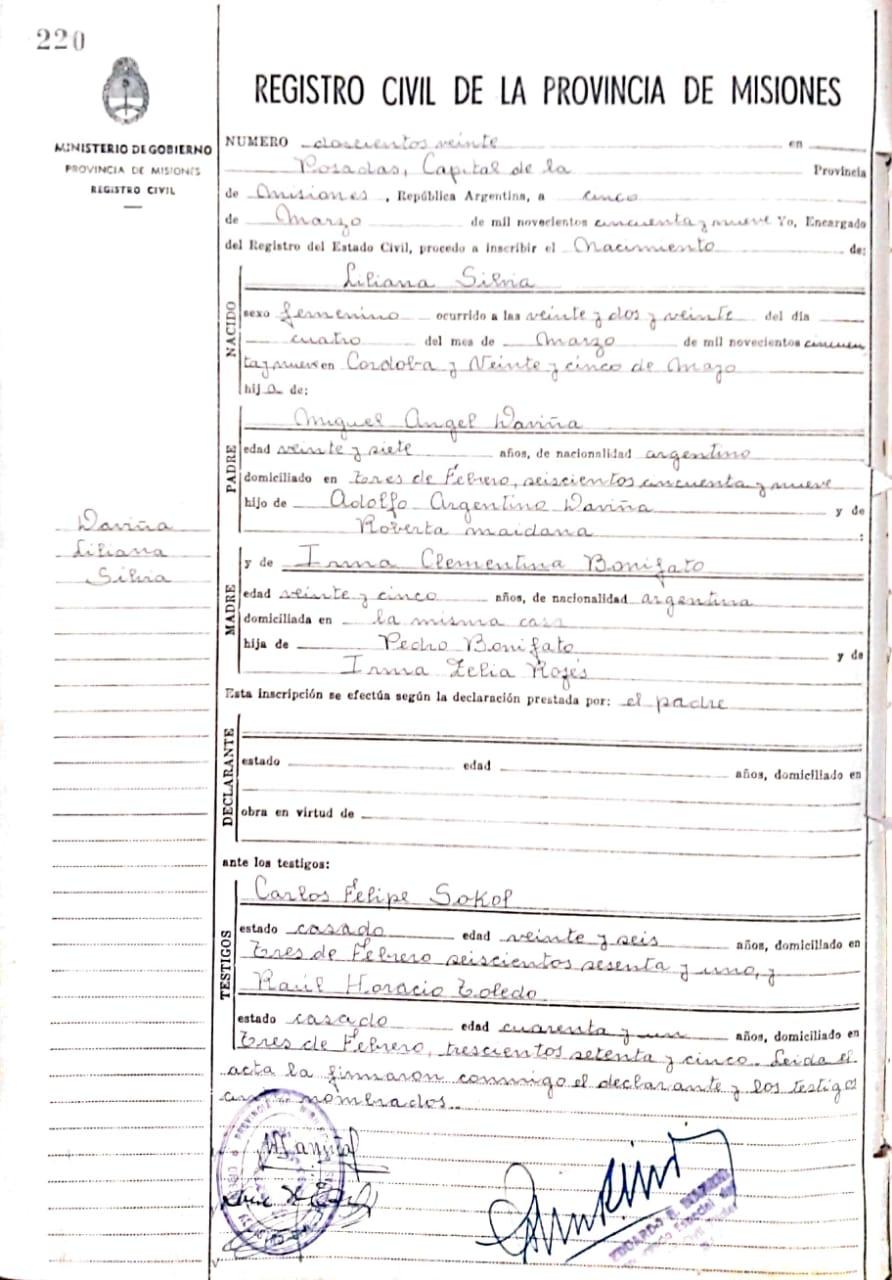 220
MINISTERIO DE GOBIERNO
PROVINCIA DE MISIONES
REGISTRO CIVIL
REGISTRO CIVIL DE LA PROVINCIA DE MISIONES
NUMERO doscientos veinte en
Posadas, Capital de la Provincia
de Misiones, República Argentina, a cinco
de Marzo de mil novecientos cincuenta y nueve Yo, Encargado
del Registro del Estado Civil, procedo a inscribir el Nacimiento de:
NACIDO
Liliana Silvia
sexo femenino ocurrido a las veinte y dos y veinte del dia
cuatro del mes de Marzo de mil novecientos cincuen
ta y nueve en Cordoba y Veinte y cinco de Mayo
hija de:
PADRE
Miguel Angel Daviña
edad veinte y siete años, de nacionalidad argentino
domiciliado en tres de Febrero, seiscientos cincuenta y nueve
hijo de Adolfo Argentino Daviña y de
Roberta maidana :
Daviña
Liliana
Silvia
MADRE
y de Irma Clementina Bonifato
edad veinte y cinco años, de nacionalidad argentina
domiciliada en la misma casa
hija de Pedro Bonifato y de
Irma Zelia Rojés
Esta inscripción se efectúa según la declaración prestada por: el padre
DECLARANTE
estado edad años, domiciliado en
obra en virtud de
ante los testigos:
TESTIGOS
Carlos Felipe Sokol
estado casado edad veinte y seis años, domiciliado en
tres de Febrero seiscientos sesenta y uno, y
Raúl Horacio Toledo
estado casado edad cuarenta y un años, domiciliado en
tres de Febrero, trescientos setenta y cinco. Leida el
acta la firmaron conmigo el declarante y los testigos
nombrados.
EDUARDO